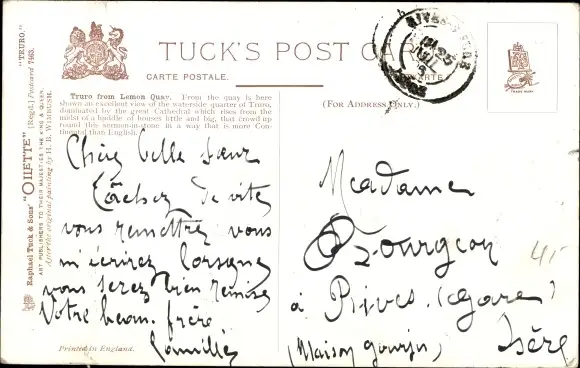 TUCK'S POST CARD
CARTE POSTALE.
(FOR ADDRESS ONLY.)
"TRURO."
Raphael Tuck & Sons' "OILETTE" [Regd.] Postcard 7463.
ART PUBLISHERS TO THEIR MAJESTIES THE KING & QUEEN.
After the original painting by H. B. WIMBUSH.
Truro from Lemon Quay. From the quay is here
shown an excellent view of the waterside quarter of Truro,
dominated by the great Cathedral which rises from the
midst of a huddle of houses little and big, that crowd up
round this sermon-in-stone in a way that is more Con-
tinental than English.
Chère belle soeur
Tâchez de vite
vous remettre vous
m'écrirez lorsque
vous serez bien remise
Votre beau frère
Camille
Printed in England.
Madame
Bourgeon
à Rives (gare)
(Maison gourju) Isère
TRADE MARK